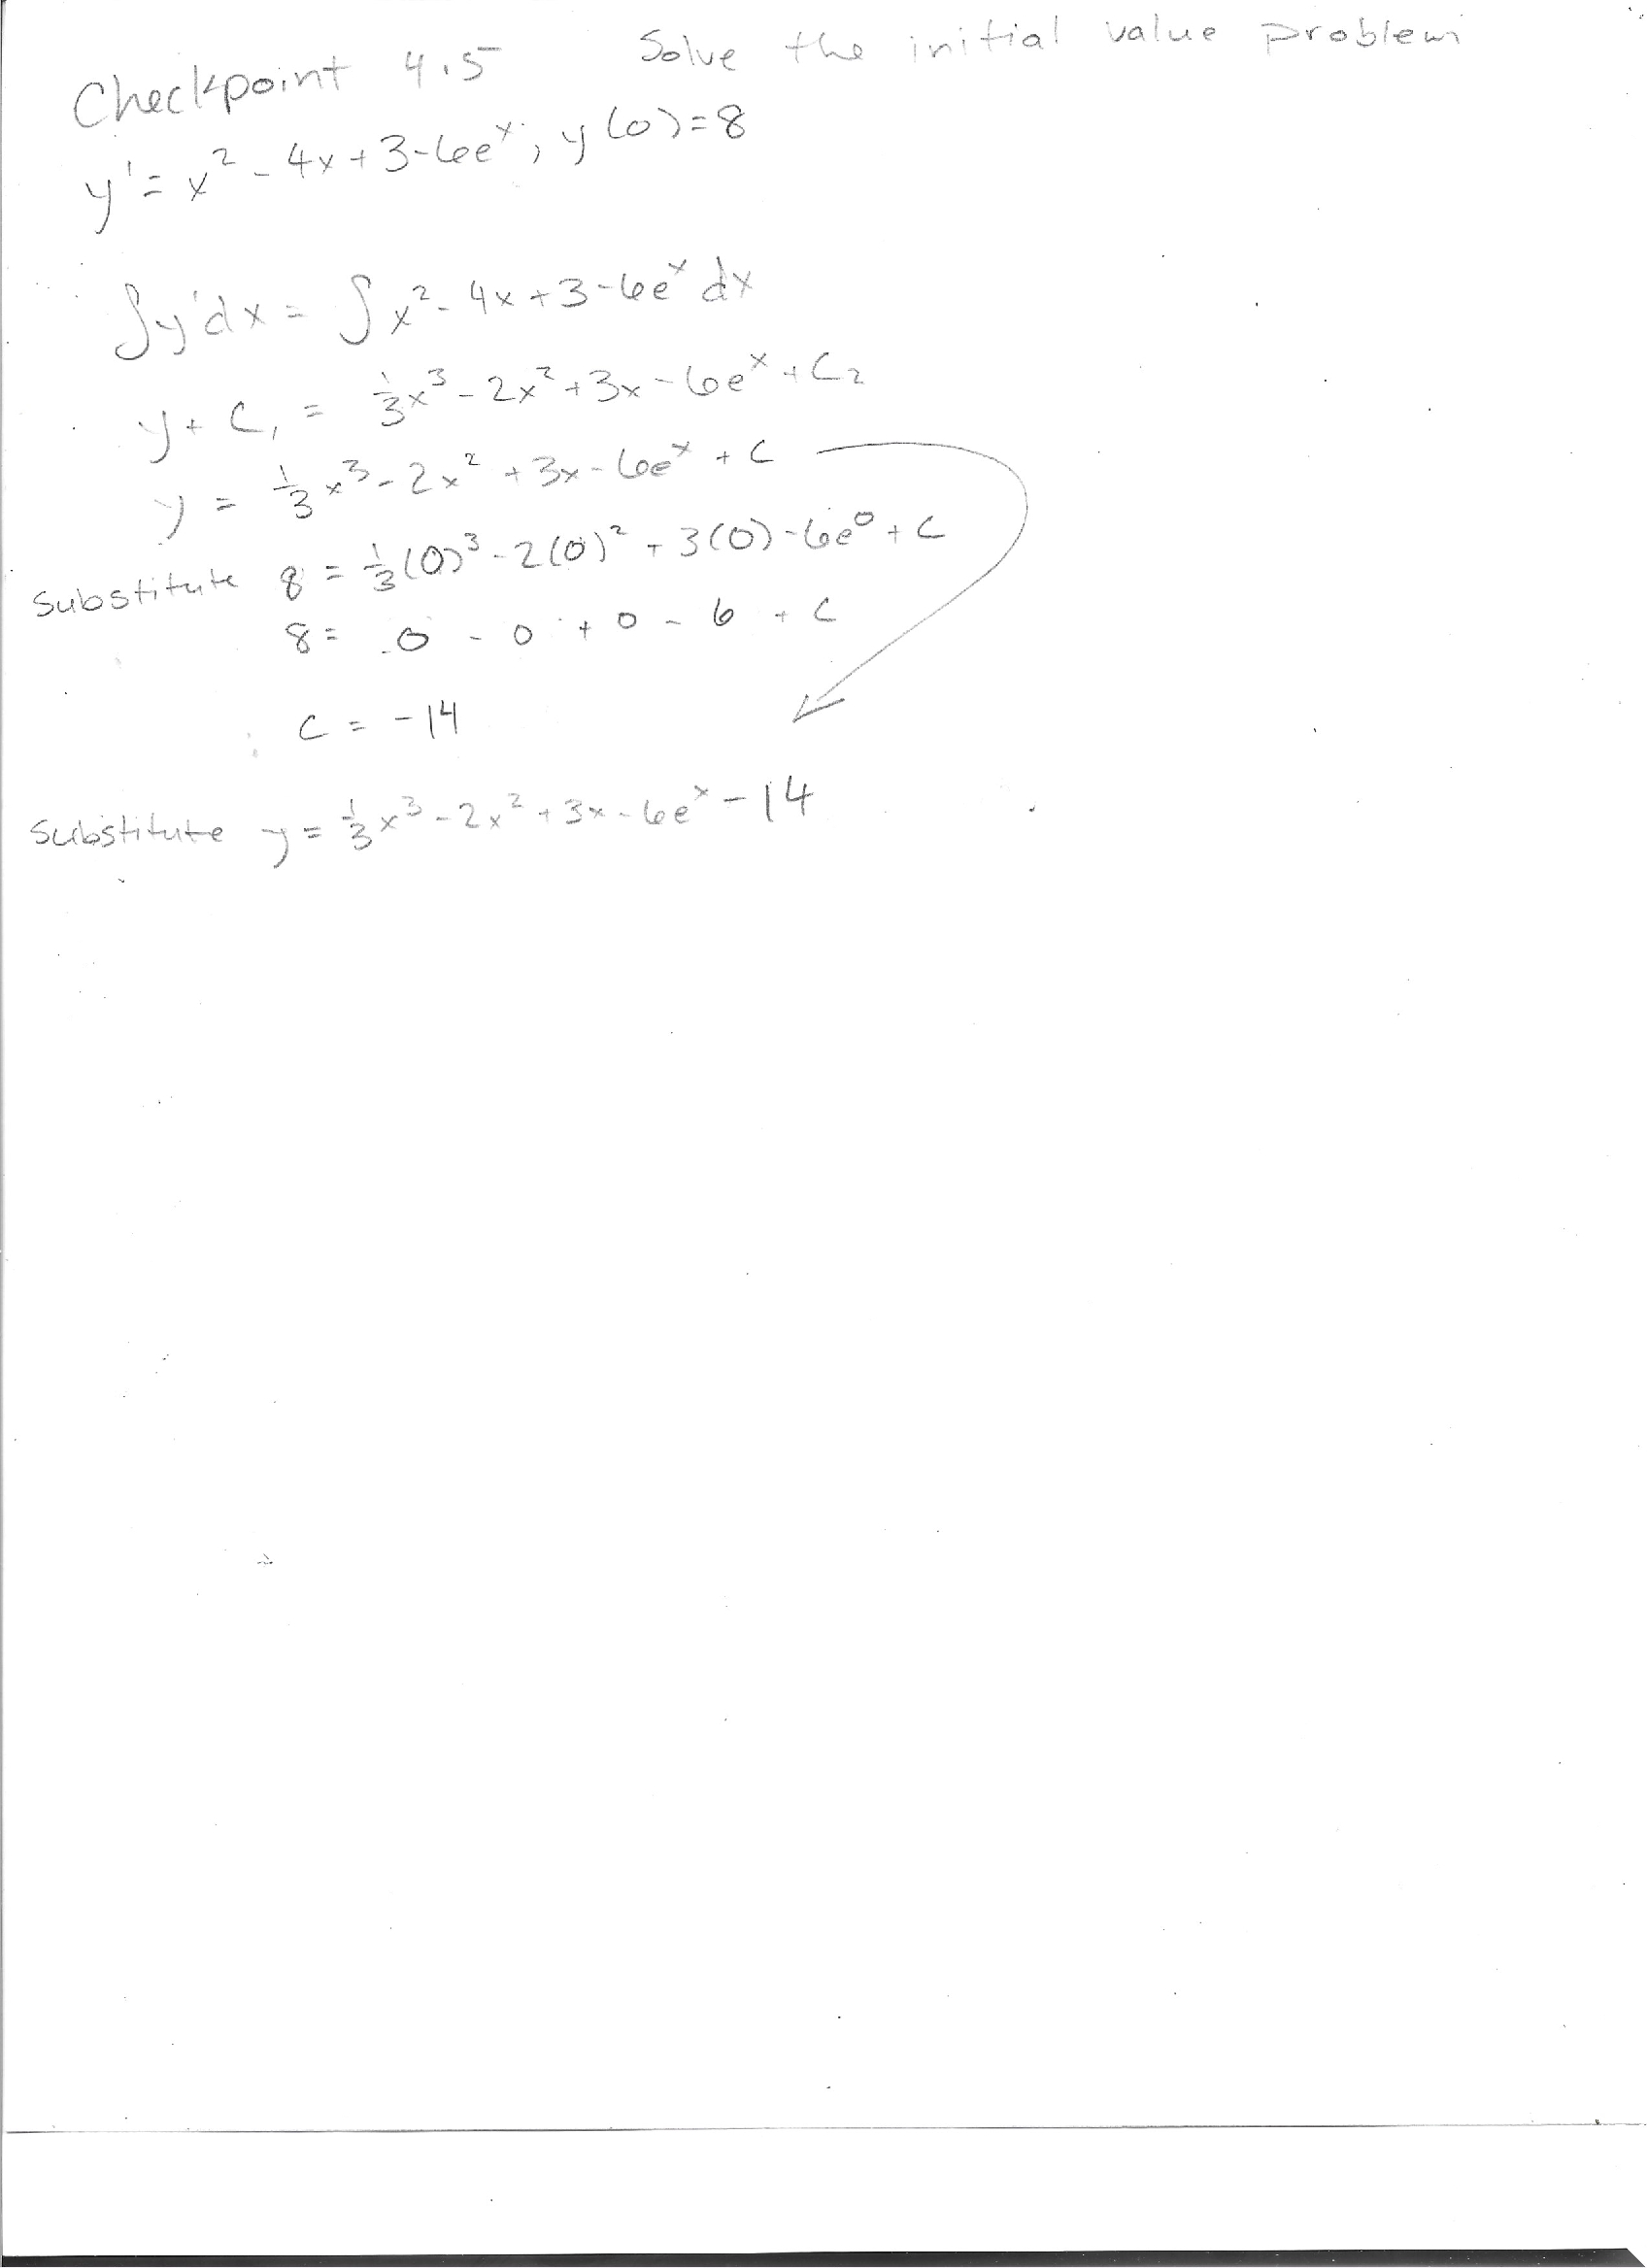 Checkpoint 4.5 Solve the initial value problem
y' = x² - 4x + 3 - 6eˣ, y(0) = 8
∫y'dx = ∫x² - 4x + 3 - 6eˣ dx
y + C₁ = 1/3 x³ - 2x² + 3x - 6eˣ + C₂
y = 1/3 x³ - 2x² + 3x - 6eˣ + C
Substitute 8 = 1/3 (0)³ - 2(0)² + 3(0) - 6e⁰ + C
8 = 0 - 0 + 0 - 6 + C
C = -14
Substitute y = 1/3 x³ - 2x² + 3x - 6eˣ - 14